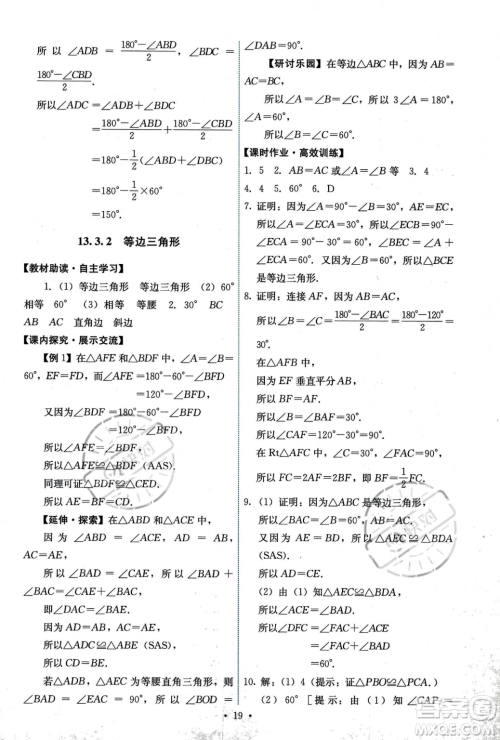 所以∠ADB=(180°-∠ABD)/2，∠BDC=
(180°-∠CBD)/2.
所以∠ADC=∠ADB+∠BDC
=(180°-∠ABD)/2+(180°-∠CBD)/2
=180°-1/2(∠ABD+∠DBC)
=180°-1/2×60°
=150°.
13.3.2 等边三角形
【教材助读·自主学习】
1.(1) 等边三角形 等边三角形 (2) 60°
相等 60° (3) 相等 等腰 2.30° BC
AB AC 直角边 斜边
【课内探究·展示交流】
【例1】在△AFE和△BDF中，∠A=∠B=
60°，EF=FD=DE，
因为∠AFE=180°-60°-∠BFD
=120°-∠BFD，
又因为∠BDF=180°-60°-∠BFD
=120°-∠BFD，
所以∠AFE=∠BDF，
所以△AFE≌△BDF (AAS).
同理可证△BDF≌△CED.
所以AE=BF=CD.
【延伸·探索】在△ABD和△ACE中，
因为∠ADB=∠AEC=90°，AB=
AC，∠ABD=∠ACE，
所以△ABD≌△ACE (AAS)，
所以∠BAD=∠CAE，AD=AE，
所以∠BAD+∠BAE=∠CAE+∠BAE，
即∠DAE=∠BAC=60°，
所以△BAE≌△BAD (SAS)，
所以CD=BE.
若△ABD、△AEC为等腰直角三角形，则
原来结论仍成立，所以∠BOD=
∠DAB=90°.
【研讨乐园】在等边三角形△ABC中，因
为∠A+∠B+∠C=180°，
所以∠A=∠B=∠C=60°.
【课时作业·高效训练】
1.5 2.AB=AC或∠A=∠B等 3.4
4.4 5.60° 6.D
7.证明：因为△ABC是等边三角形，
所以∠A=∠ACB=60°.
又因为∠ABE+∠CBE=90°，∠ECA+
∠BCE=90°，∠ABE=∠ECA，
所以∠CBE=∠BCE=60°，
所以∠BEC=60°，所以△BCE
是等边三角形.
8.证明：连接AF，因为AB=AC，
所以∠B=∠C=(180°-∠BAC)/2=(180°-120°)/2=
30°.
又因为EF垂直平分AB，
所以BF=AF=AB，
所以∠BAF=∠B=30°，
所以∠FAC=90°.
在Rt△AFC中，因为∠C=30°，
所以FC=2AF=2BF，即BF=1/2FC.
9.(1) 证明：因为△ABC是等边三角形，
所以∠BAC=∠B=60°，AB=AC.
又因为AE=BD，所以△AEC≌△BDA
(SAS).
所以AD=CE.
(2) 由 (1) 知∠ACE=∠BAD，
所以∠DFC=∠FAC+∠ACE=∠FAC+
∠BAD=60°.
10.解：(1) 4 (提示：证△PBO≌△PCA.)
(2) 60° [提示：由 (1) 知∠CAP=
19